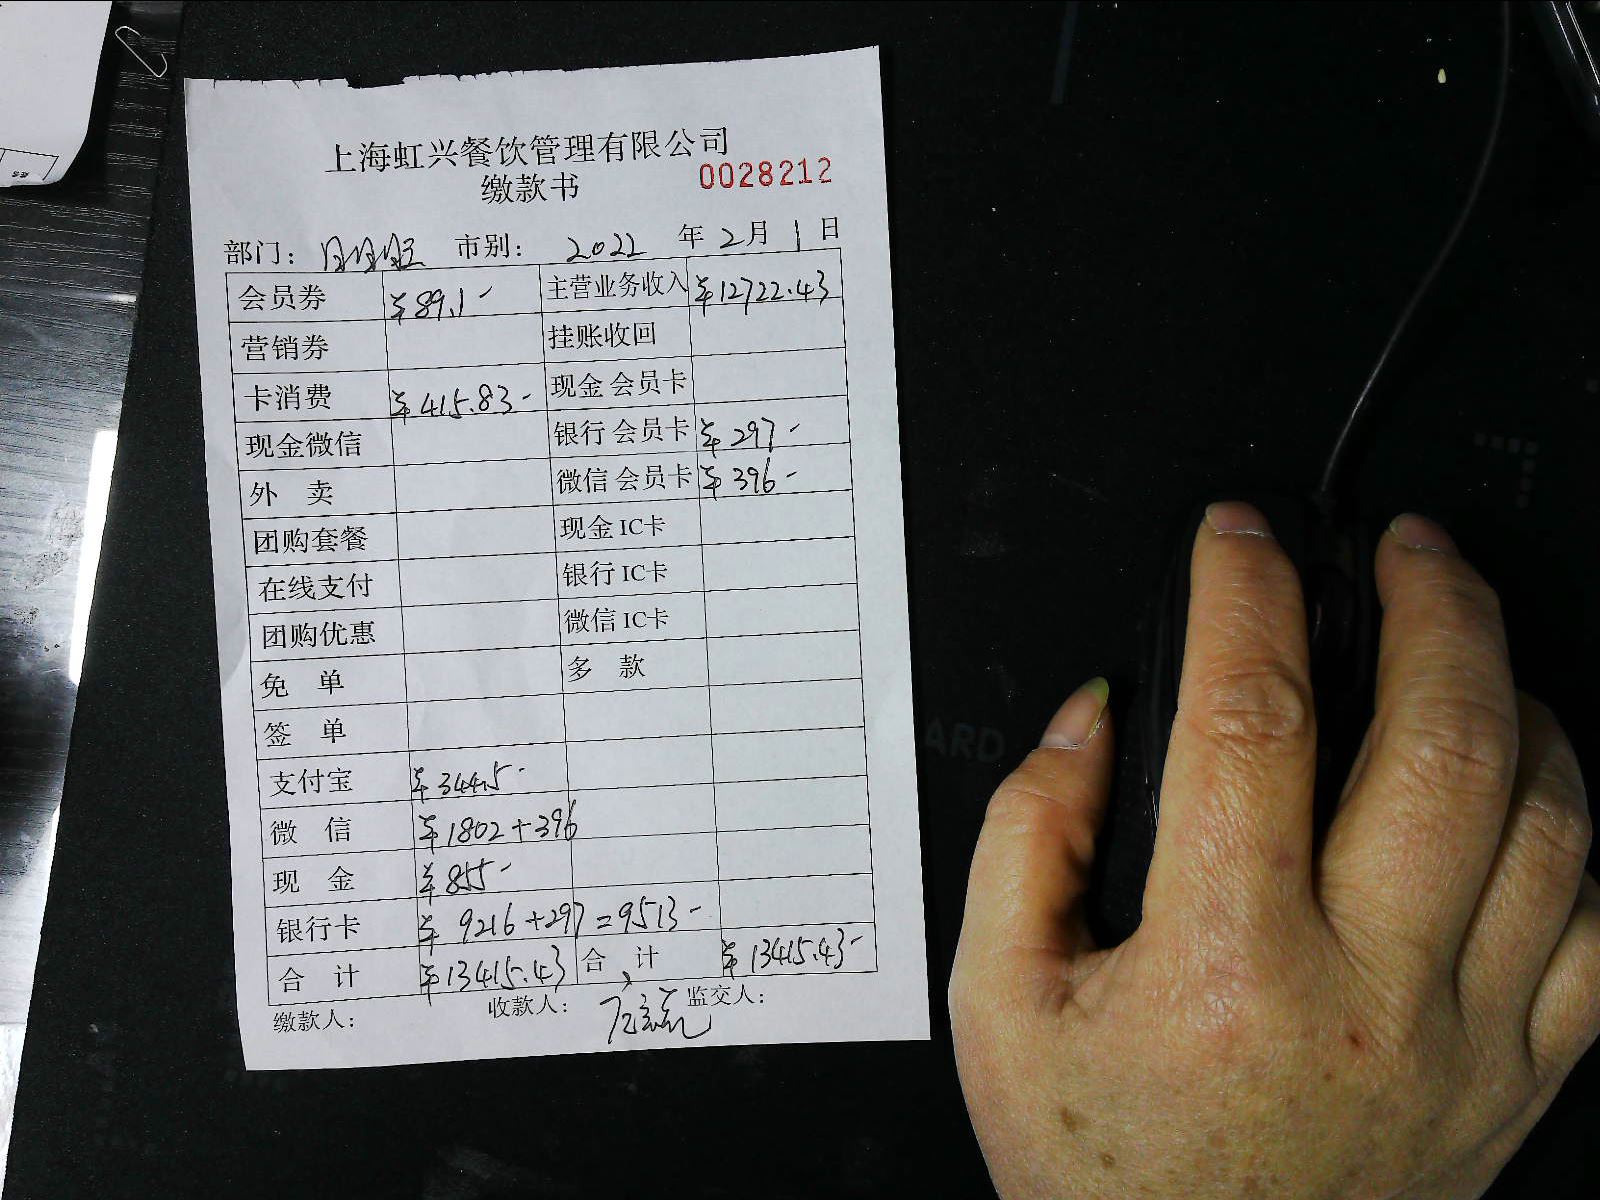 上海虹兴餐饮管理有限公司
缴款书 0028212
部门： 市别： 2022 年 2 月 1 日
会员券 ¥89.1- 主营业务收入 ¥12722.43
营销券 挂账收回
卡消费 ¥415.83- 现金 会员卡
现金微信 银行 会员卡 ¥297-
外 卖 微信 会员卡 ¥396-
团购套餐 现金 IC卡
在线支付 银行 IC卡
团购优惠 微信 IC卡
免 单 多 款
签 单
支付宝 ¥344.5-
微 信 ¥1802+396
现 金 ¥855-
银行卡 ¥ 9216+297=9513-
合 计 ¥13415.43 合 计 ¥13415.43-
缴款人： 收款人： 监交人：
ARD